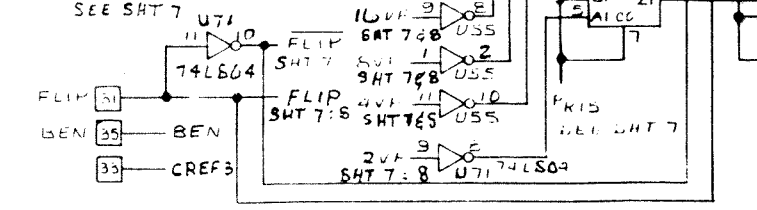 SEE SHT 7
U71
11 10
74LS04
FLIP
SHT 7
FLIP 31
FLIP
SHT 7:8
BEN 35 BEN
33 CREF3
16VF 9 8
SHT 7&8 U55
1 2
SHT 7&8 U55
4VF 11 10
SHT 7&8 U55
2VF 9 8
SHT 7:8 U71 74LS04
5 A1 CG 21
7
SEE SHT 7